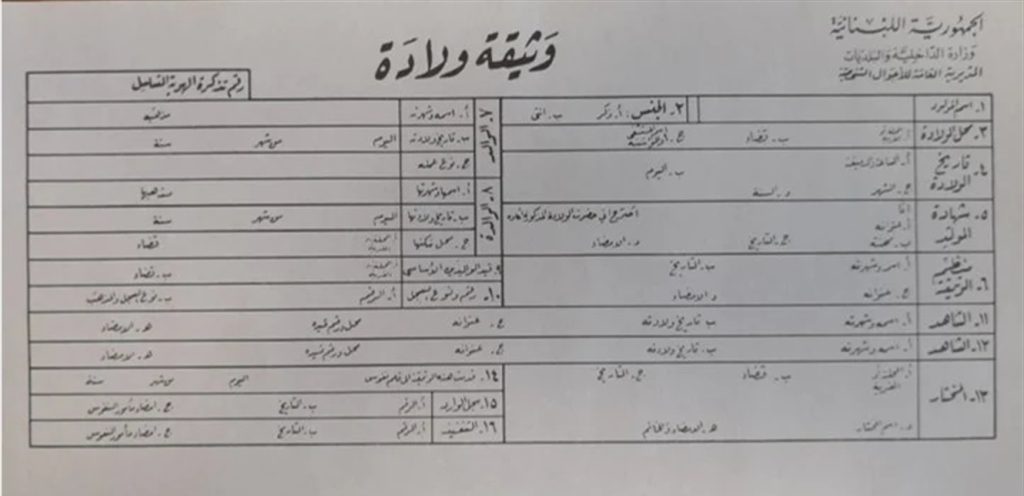 الجمهورية اللبنانية
وزارة الداخلية والبلديات
المديرية العامة للأحوال الشخصية
وثيقة ولادة
رقم تذكرة الهوية التسلسل
١. اسم المولود
٢. الجنس: أ. ذكر ب. انثى
٣. محل الولادة أ. المحلة او القرية ب. قضاء ج. المستشفى
٤. تاريخ الولادة أ. الساعة والدقيقة ب. اليوم
ج. الشهر د. السنة
٥. شهادة المولد انا اصرح اني حضرت الولادة المذكورة اعلاه
أ. عنوانه
ب. مهنته ج. التاريخ د. الامضاء
٦. منظم الوثيقة أ. اسمه وشهرته ب. التاريخ
ج. عنوانه د. الامضاء
٧. الوالد أ. اسمه وشهرته مذهبه
ب. تاريخ ولادته اليوم من شهر سنة
ج. نوع عمله
٨. الوالدة أ. اسمها وشهرتها مذهبها
ب. تاريخ ولادتها اليوم من شهر سنة
ج. محل سكنها أ. المحلة او القرية قضاء
٩. قيد الوالدين الأساسي أ. المحلة او القرية ب. قضاء
١٠. رقم ونوع السجل أ. الرقم ب. نوع السجل والمذهب
١١. الشاهد أ. اسمه وشهرته ب. تاريخ ولادته ج. عنوانه محل ورقم قيده هـ. الامضاء
١٢. الشاهد أ. اسمه وشهرته ب. تاريخ ولادته ج. عنوانه محل ورقم قيده هـ. الامضاء
١٣. المختار أ. المحلة او القرية ب. قضاء ج. التاريخ
د. اسم المختار هـ. الامضاء والخاتم
١٤. قدمت هذه الوثيقة الى قلم نفوس اليوم من شهر سنة
١٥. سجل الوارد أ. الرقم ب. التاريخ ج. امضاء مأمور النفوس
١٦. التنفيذ أ. الرقم ب. التاريخ ج. امضاء مأمور النفوس